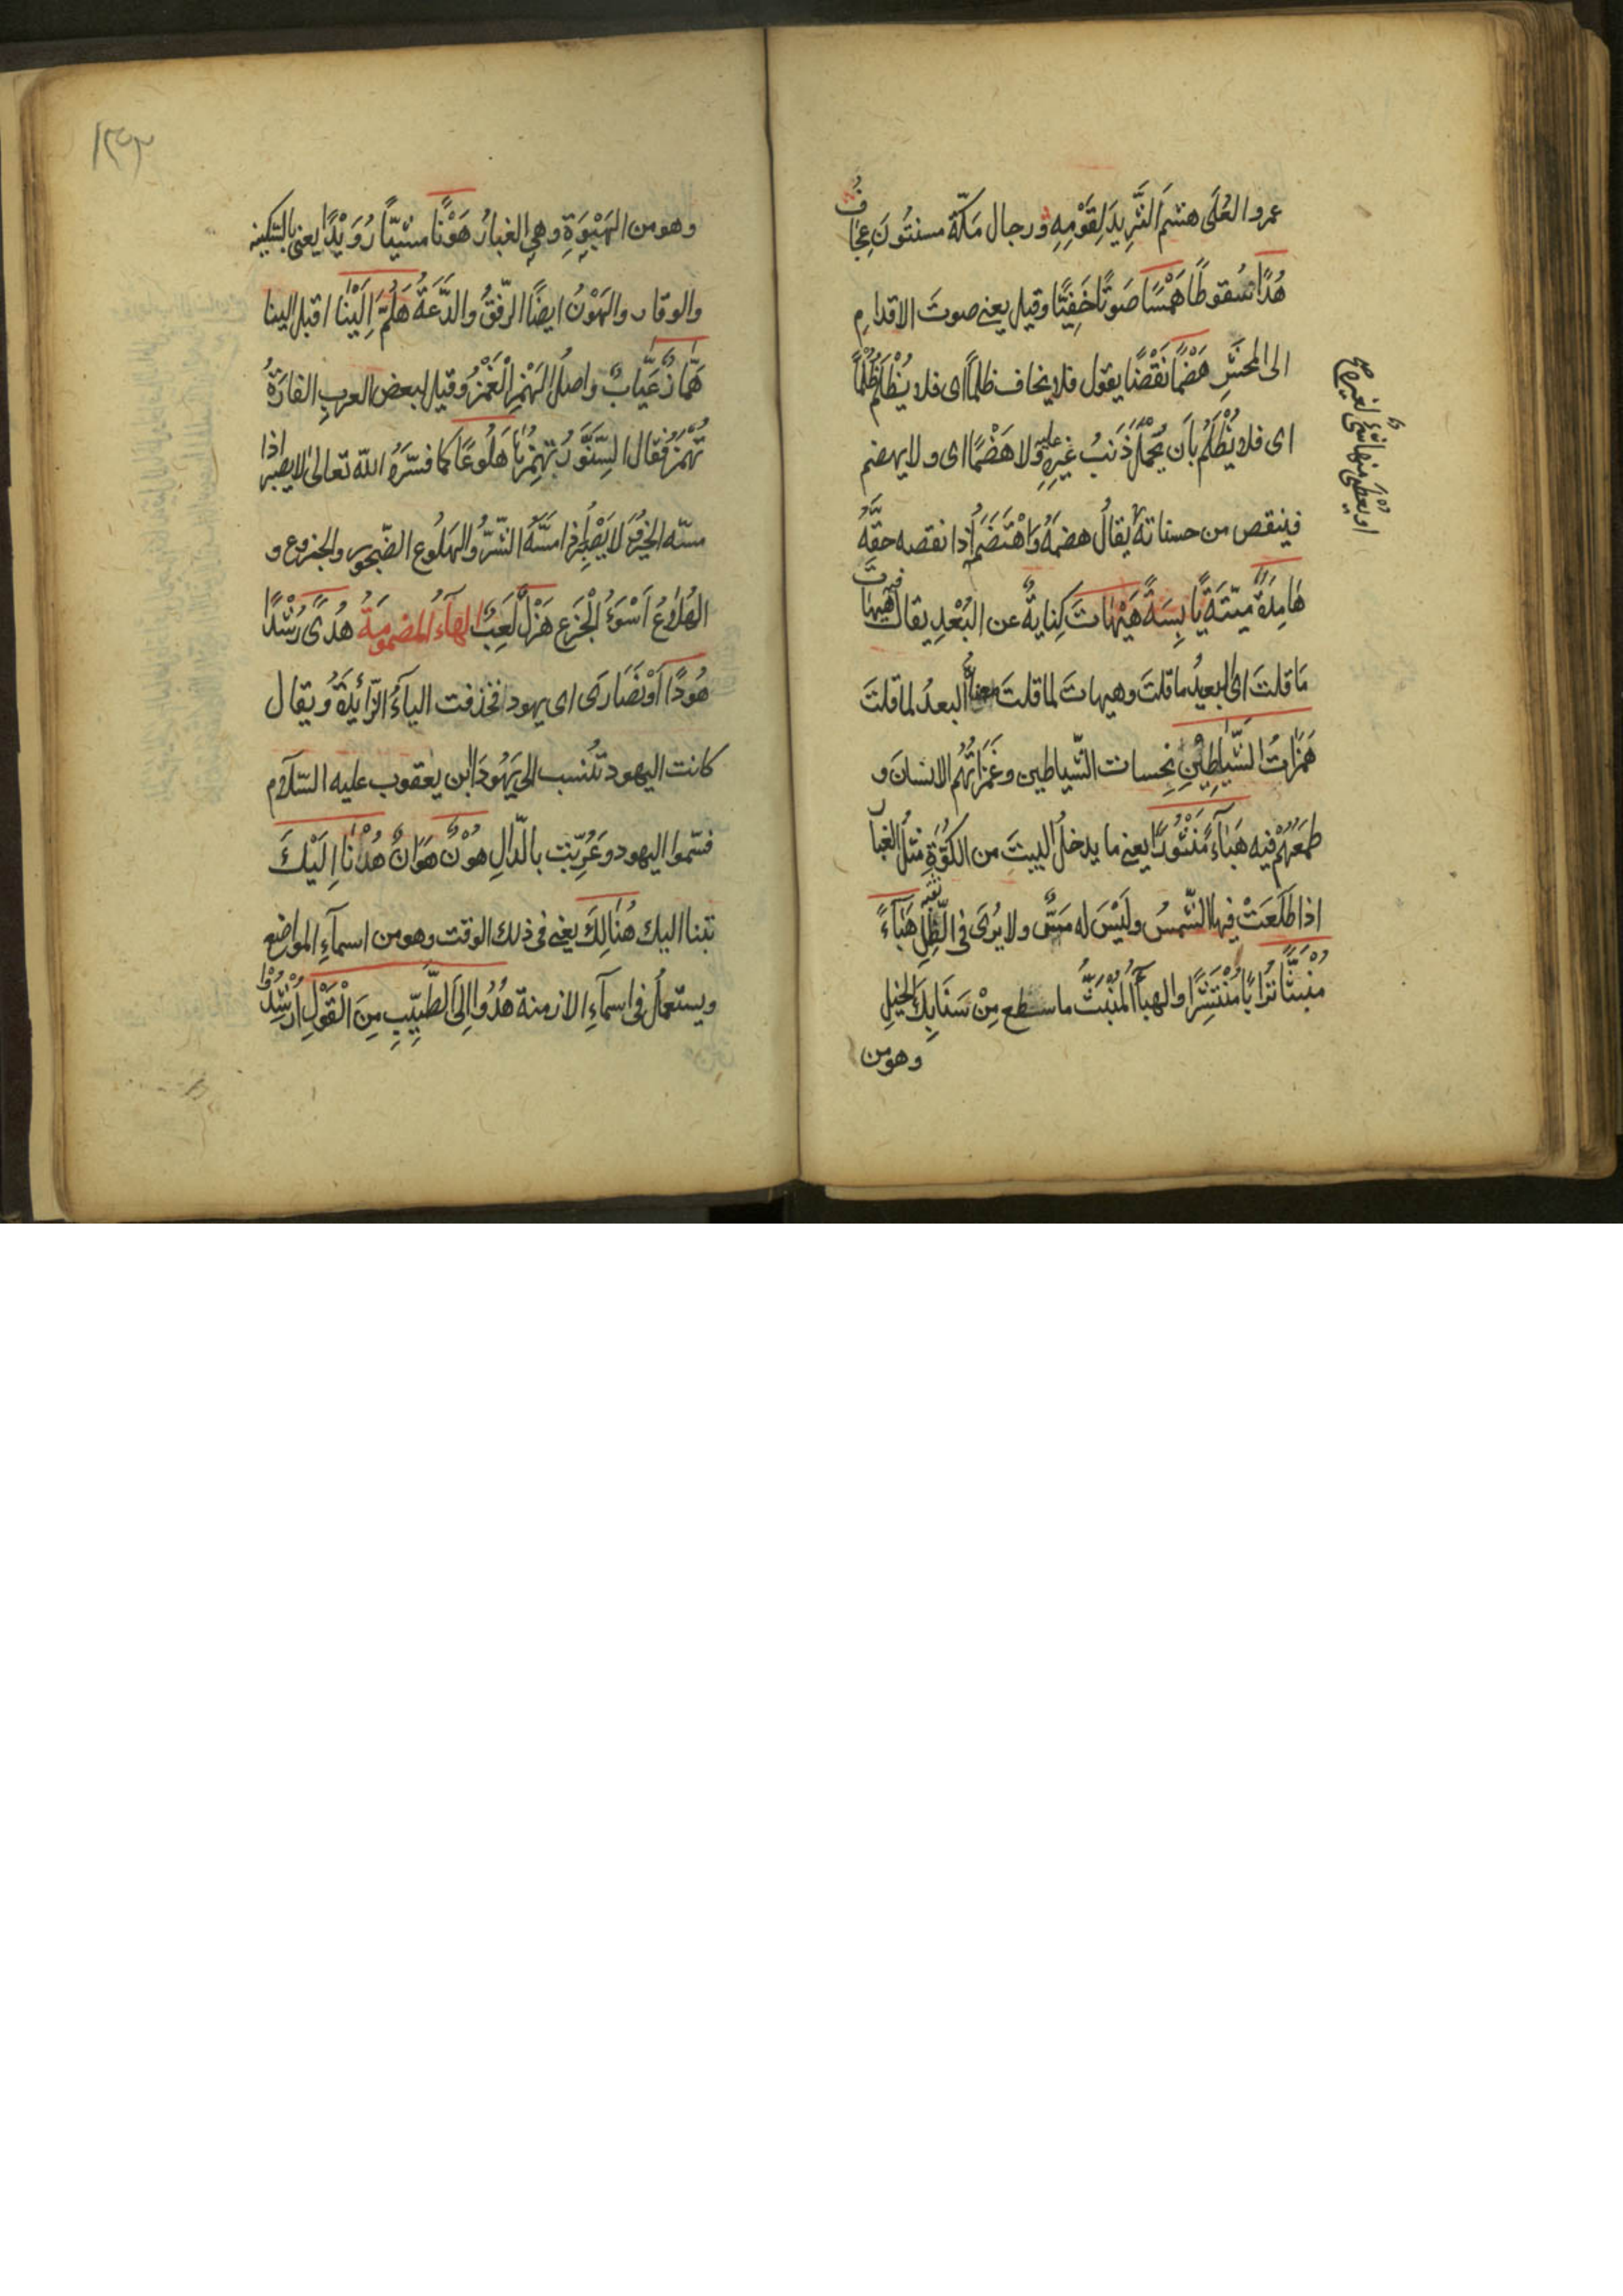 عمروا العُلَى هشم الثَّرِيدَ لِقَوْمِهِ ورجال مَكّة مسنتُونَ عِجَافُ
هُدًّا سُقوطًا هَمْسًا صَوتًا خَفِيًّا وقيل يعنى صوتَ الاقدامِ
الى المحشَرِ هَضْمًا نَقْصًا يقول فلا يخاف ظلمًا اى فلا يُظْلَمُ ظُلْمًا
اى فلا يُظْلَمُ بأن يُحْمَلَ ذَنبُ غيرِهِ عليه ولا هَضْمًا اى ولا يهضم
فينقص من حسناته يقالُ هضمَهُ وَاهْتَضَمَهُ اذا نقصه حقَّهُ
هَامِدَةً ميّتةً يَابِسَةً هَيْهَاتَ كِنايةٌ عن البُعْدِ يقال هَيهات
مَا قلتَ اى البعيدُ ما قلتَ وهيهاتَ لما قلتَ معناه البعدُ لما قلتَ
هَمَزَاتُ الشَّيٰطِيْنِ نخسات الشّياطين وغَمَزَاتُهُم الانسانَ و
طمَعُهُمْ فيه هَبَآءً مَّنْثُورًا يعنى ما يدخلُ البيتَ من الكُوَّةِ مثلُ الغبار
اذا طَلَعَتْ فيها الشّمسُ ولَيْسَ له مَسٌّ ولا يُرَى فى الظِّلِّ هَبَآءً
مُنْبَثًّا تُرَابًا مُنْتَشِرًا والهبآءُ المُنْبَثُّ ما سطع مِنْ سَنَابِكِ الخيلِ
وهو من
وهو من الهَبْوَةِ وهى الغبارُ هَوْنًا مشيًا رُوَيْدًا يعنى بالسّكينه
والوقار والهَوْنُ ايضًا الرِّفقُ والدَّعَةُ هَلُمَّ اِلَيْنَا اقبل الينا
هَمَّازٌ عَيَّابٌ واصلُ الهَمْزِ الْغَمْزُ وقيل لبعض العربِ الفارَةُ
تُهْمَزُ فقال السِّنَّوْرُ تهمِزُهَا هَلُوعًا كما فسّرَهُ الله تعالى لا يصبر اذا
مسّه الخيرُ ولا يَصْبِرُ اذا مسَّهُ الشّرُّ والهَلُوع الضّجور والجزوع و
الهُلَاعُ اَسْوَءُ الْجَزَعِ هَزْلٌ لَعِبٌ الهآءُ المضمومَةُ هُدًى رُشْدًا
هُودًا اَوْ نَصَارَى اى يهودا فحذفت اليآءُ الزّائدةُ ويقال
كانت اليهود تنسب الى يَهُودَا ابن يعقوب عليه السّلام
فسّموا اليهود وعُرِّبت بالدّالِ هُوْنٌ هَوَانٌ هُدْنَا اِلَيْكَ
تبنا اليك هُنَالِكَ يعنى فى ذلك الوقت وهو من اسمآءِ المواضع
ويستعملُ فى اسمآءِ الازمنة هُدُوا اِلَى الطَّيِّبِ مِنَ الْقَوْلِ اُرْشِدُوْا